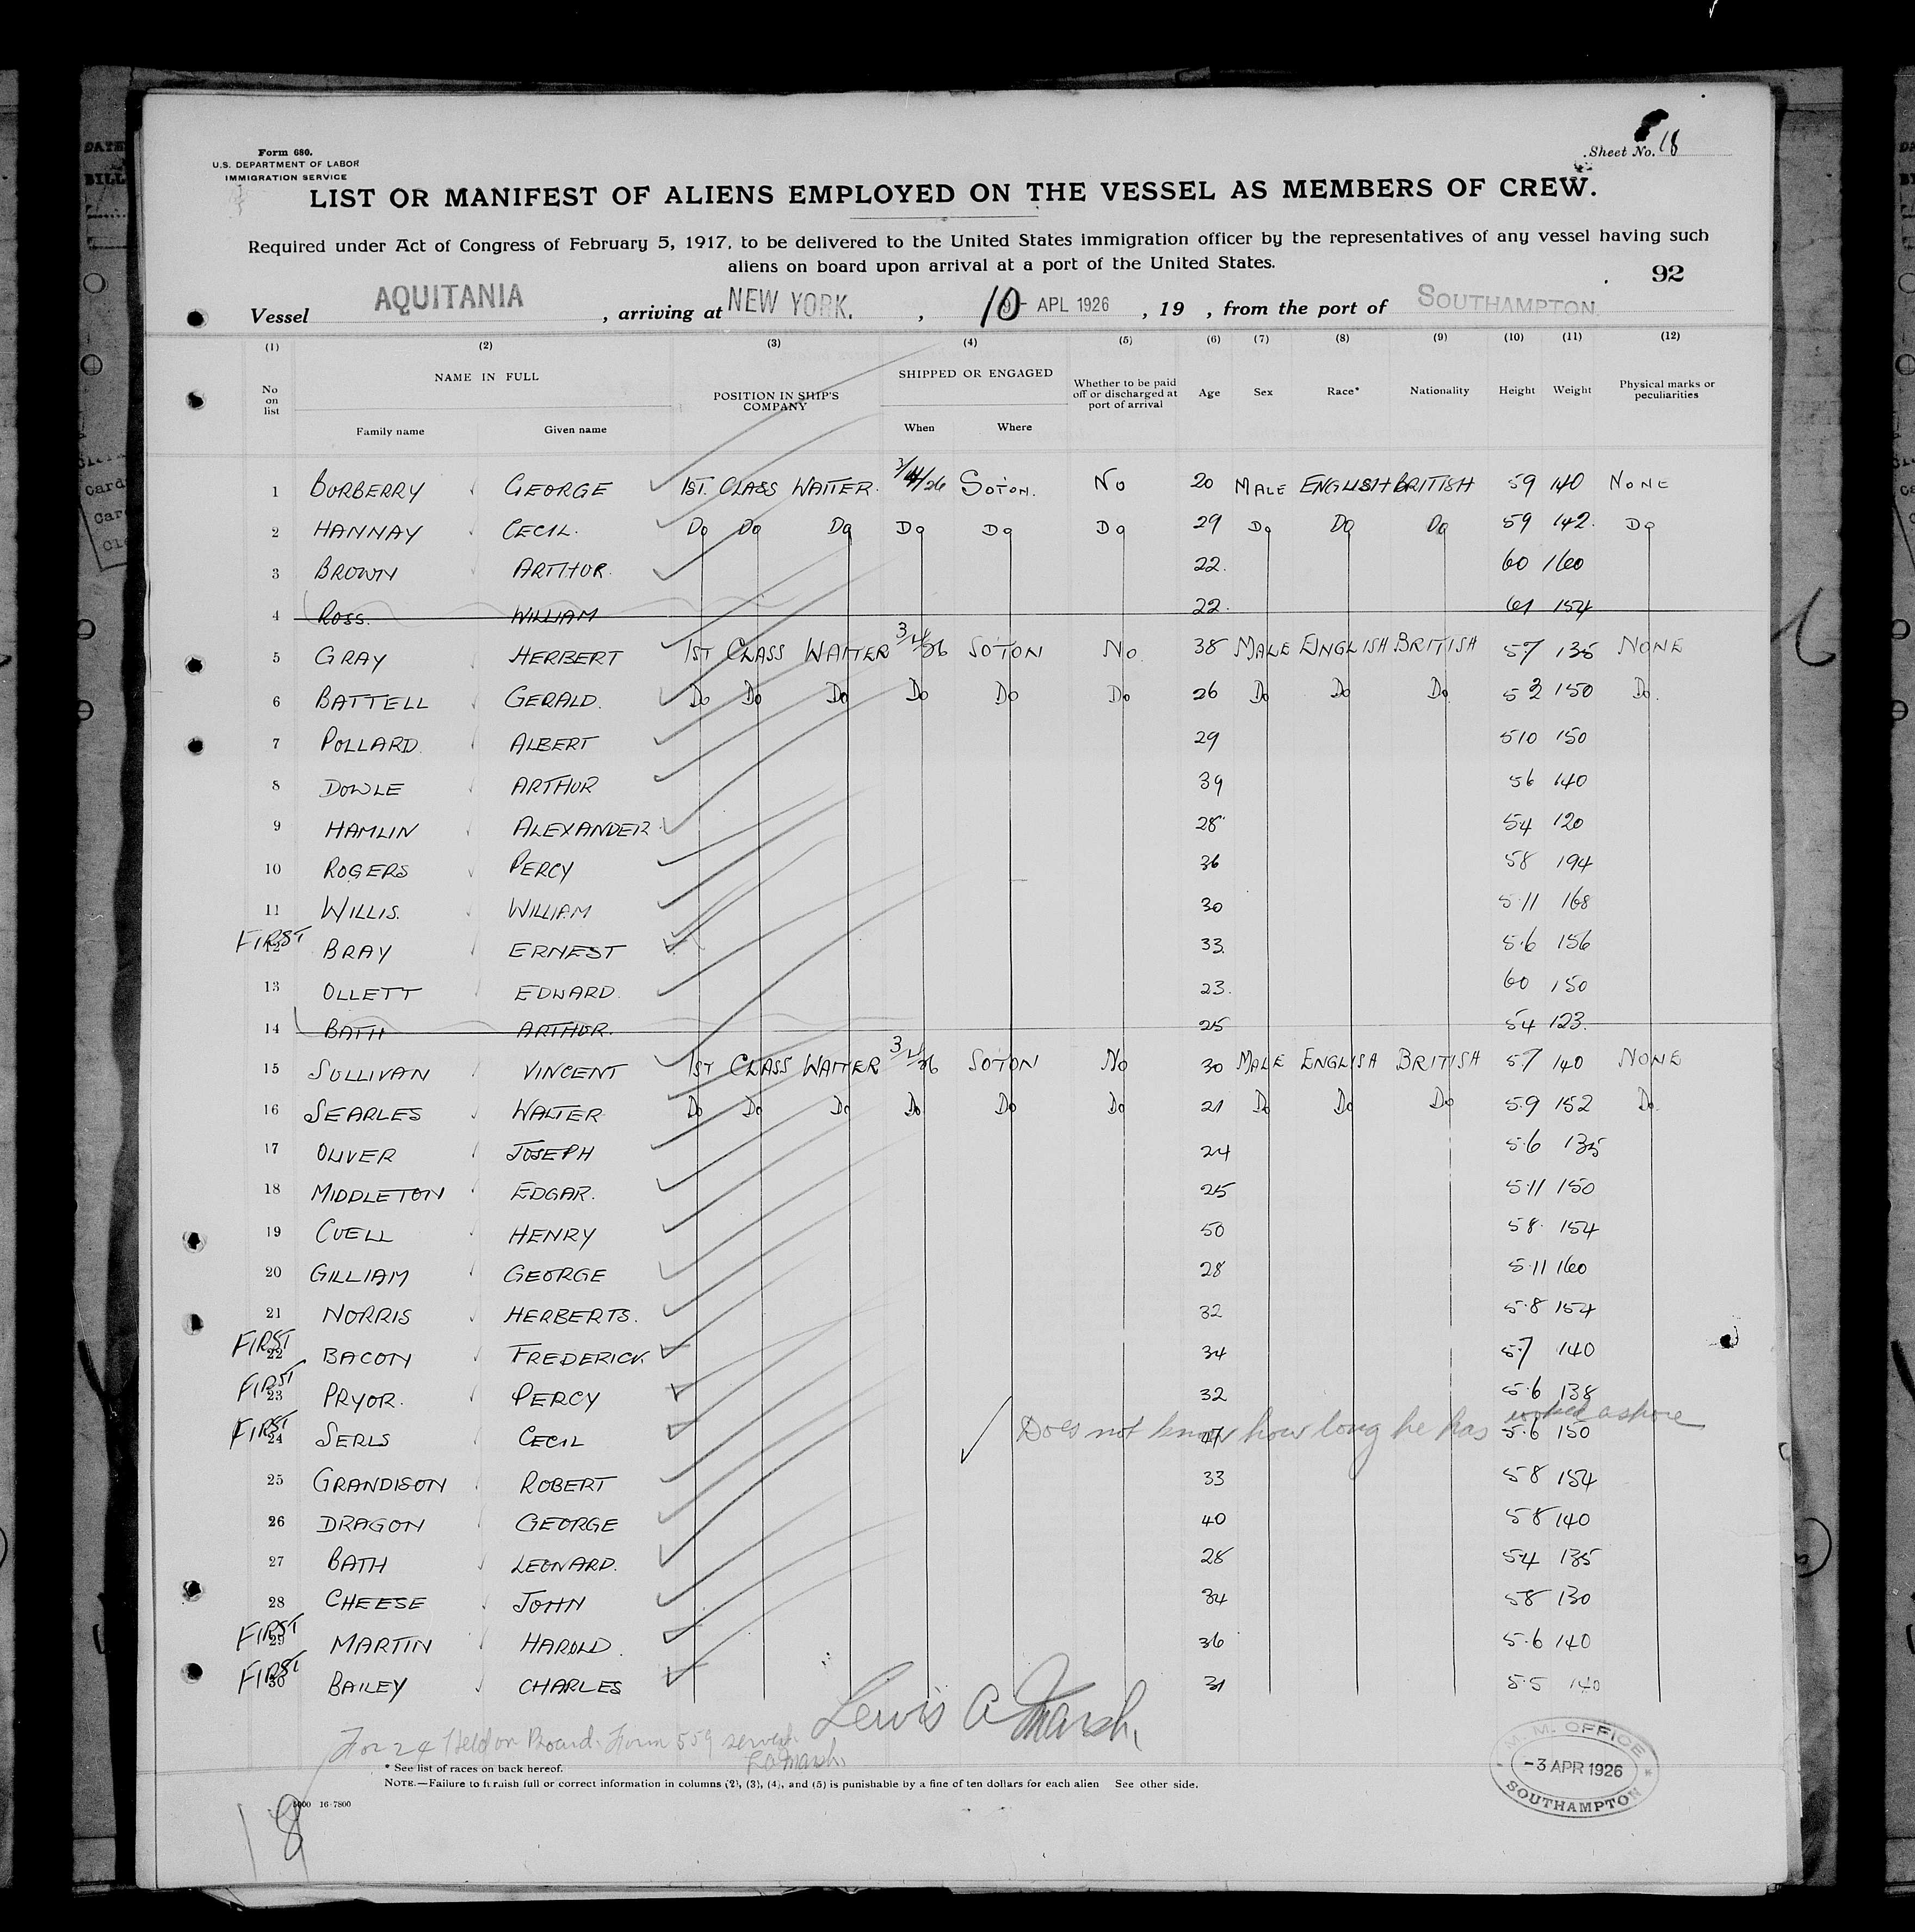 Form 680.
U.S. DEPARTMENT OF LABOR
IMMIGRATION SERVICE
Sheet No. 18
LIST OR MANIFEST OF ALIENS EMPLOYED ON THE VESSEL AS MEMBERS OF CREW.
Required under Act of Congress of February 5, 1917, to be delivered to the United States immigration officer by the representatives of any vessel having such
aliens on board upon arrival at a port of the United States.
92
Vessel AQUITANIA, arriving at NEW YORK., 10 APL 1926, 19 , from the port of SOUTHAMPTON.
(1) (2) (3) (4) (5) (6) (7) (8) (9) (10) (11) (12)
No on list NAME IN FULL Family name Given name POSITION IN SHIP'S COMPANY SHIPPED OR ENGAGED When Where Whether to be paid off or discharged at port of arrival Age Sex Race* Nationality Height Weight Physical marks or peculiarities
1 BURBERRY GEORGE 1ST. CLASS WAITER. 3/4/26 SOTON. NO 20 MALE ENGLISH BRITISH 59 140 NONE
2 HANNAY CECIL. Do Do Do Do Do Do 29 Do Do Do 59 142. Do
3 BROWN ARTHUR. 22. 60 160
4 ROSS. WILLIAM 22. 61 154
5 GRAY HERBERT 1ST CLASS WAITER 3/4/26 SOTON NO. 38 MALE ENGLISH BRITISH 57 135 NONE
6 BATTELL GERALD. Do Do Do Do Do Do 26 Do Do Do 150 Do.
7 POLLARD. ALBERT 29 510 150
8 DOWLE ARTHUR 39 56 140
9 HAMLIN ALEXANDER. 28 54 120
10 ROGERS PERCY 36 58 194
11 WILLIS. WILLIAM 30 5·11 168
FIRST 12 BRAY ERNEST 33. 5·6 156
13 OLLETT EDWARD. 23. 60 150
14 BATH ARTHUR. 25 54 123.
15 SULLIVAN VINCENT 1ST CLASS WAITER 3/4/26 SOTON NO 30 MALE ENGLISH BRITISH 57 140 NONE
16 SEARLES WALTER Do Do Do Do Do Do 21 Do Do Do 5.9 152 Do
17 OLIVER JOSEPH 24 5·6 135
18 MIDDLETON EDGAR. 25 5·11 150
19 CUELL HENRY 50 58 154
20 GILLIAM GEORGE 28 5·11 160
21 NORRIS HERBERTS. 32 5·8 154
FIRST 22 BACON FREDERICK. 34 5·7 140
FIRST 23 PRYOR. PERCY 32 5·6 138
Does not know how long he has worked ashore
FIRST 24 SERLS CECIL 5·6 150
25 GRANDISON ROBERT 33 58 154
26 DRAGON GEORGE 40 58 140
27 BATH LEONARD. 28 54 135
28 CHEESE JOHN 34 58 130
FIRST 29 MARTIN HAROLD. 36 5·6 140
FIRST 30 BAILEY CHARLES 31 5·5 140
Lewis A Marsh,
For 24 Held on Board. Form 559 served.
L A Marsh.
* See list of races on back hereof.
NOTE.—Failure to furnish full or correct information in columns (2), (3), (4), and (5) is punishable by a fine of ten dollars for each alien See other side.
16-7800
18
M. M. OFFICE
-3 APR 1926
SOUTHAMPTON